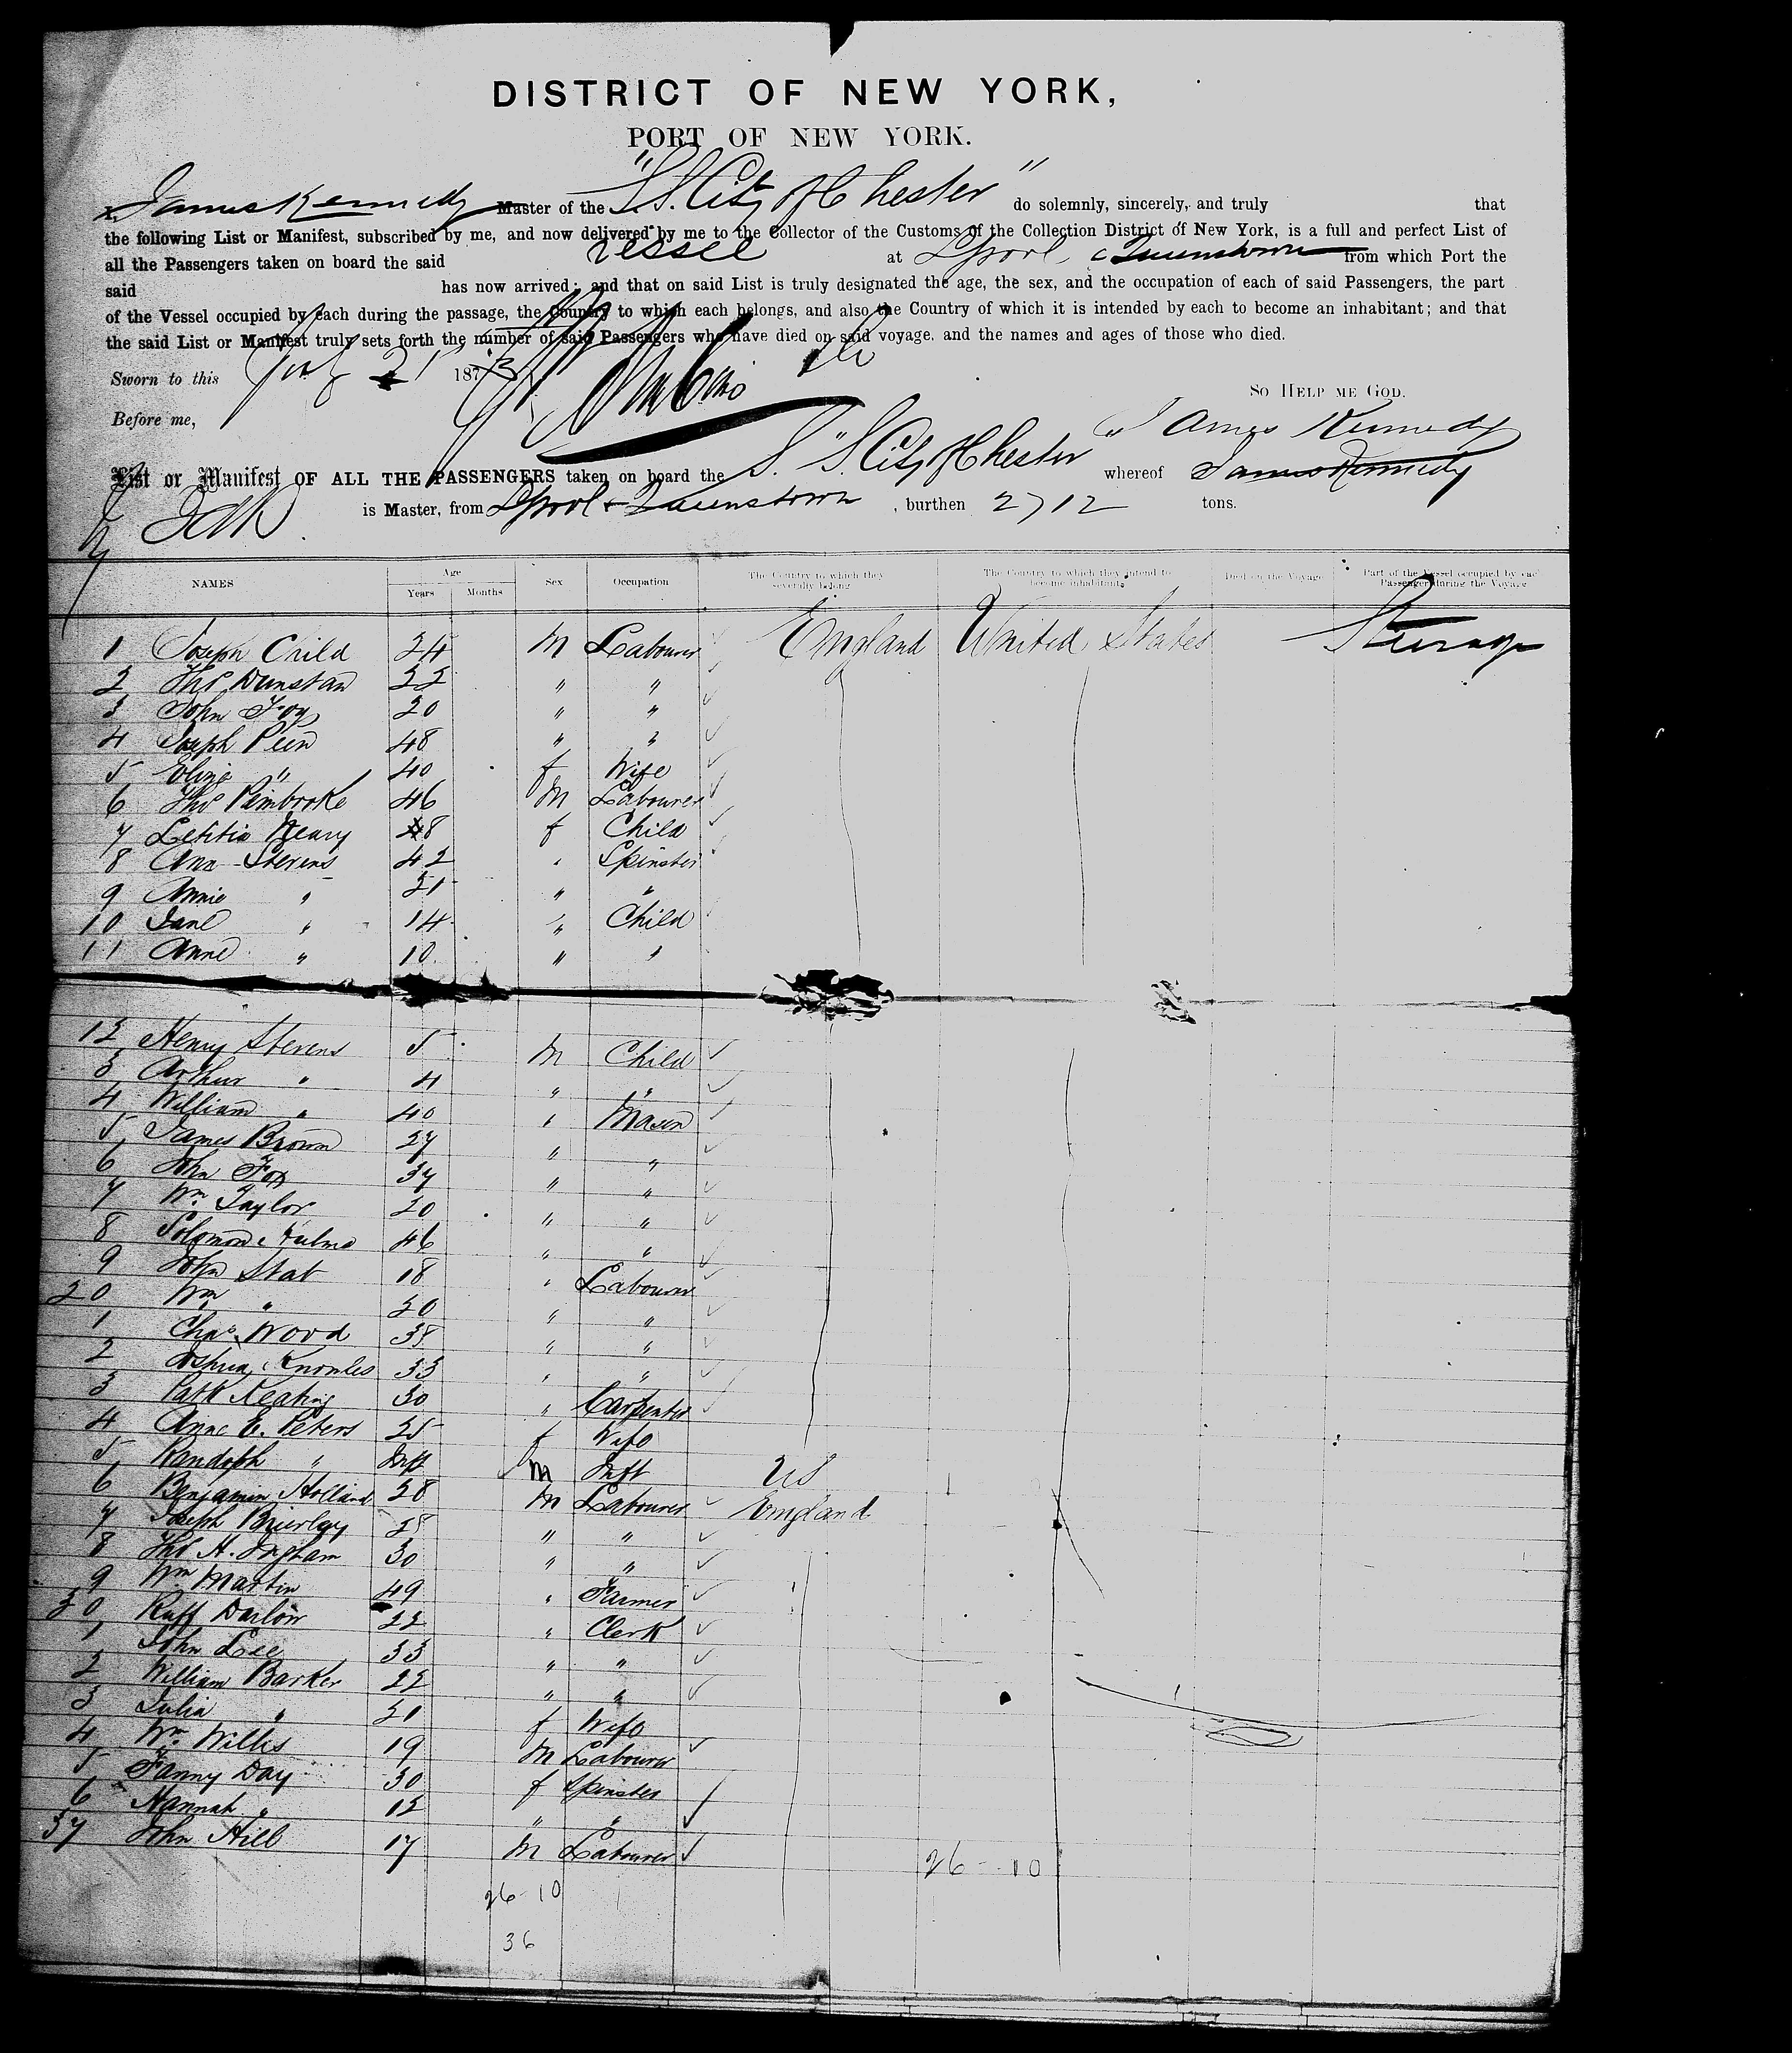 DISTRICT OF NEW YORK,
PORT OF NEW YORK.
I, James Kennedy Master of the "S.S. City of Chester" do solemnly, sincerely, and truly that
the following List or Manifest, subscribed by me, and now delivered by me to the Collector of the Customs of the Collection District of New York, is a full and perfect List of
all the Passengers taken on board the said vessel at Lpool & Queenstown from which Port the
said has now arrived; and that on said List is truly designated the age, the sex, and the occupation of each of said Passengers, the part
of the Vessel occupied by each during the passage, the Country to which each belongs, and also the Country of which it is intended by each to become an inhabitant; and that
the said List or Manifest truly sets forth the number of said Passengers who have died on said voyage, and the names and ages of those who died.
Sworn to this 21 187
So Help me God.
Before me,
James Kennedy
List or Manifest OF ALL THE PASSENGERS taken on board the S. S. City of Chester whereof James Kennedy
is Master, from Lpool & Queenstown, burthen 2712 tons.
NAMES Age Years Months Sex Occupation The Country to which they severally belong The Country to which they intend to become inhabitants Died on the Voyage Part of the Vessel occupied by each Passenger during the Voyage
1 Joseph Child 24 M Labourer England United States Steerage
2 Thos Dunstan 22 " "
3 John Foy 20 " "
4 Joseph Peen 48 " "
5 Eliza " 40 f Wife
6 Thos Pembroke 46 M Labourer
7 Letitia Neary 8 f Child
8 Ann Stevens 42 " Spinster
9 Annie " 21 " "
10 Jane " 14 " Child
11 Anne " 10 " "
12 Henry Stevens 5 M Child
3 Arthur " 4 " "
4 William " 40 " Mason
5 James Brown 27 " "
6 John Fox 37 " "
7 Wm Taylor 20 " "
8 Solomon Hulme 46 " "
9 John Stat 18 " Labourer
20 Wm " 20 " "
1 Chas Wood 38 " "
2 Joshua Knowles 33 " "
3 Patk Keating 30 " Carpenter
4 Anne E. Peters 25 f Wife
5 Randolph " Inft M Inft US
6 Benjamin Holland 28 M Labourer England
7 Joseph Brierley 28 " "
8 Thos A. Ingham 30 " "
9 Wm Martin 49 " Farmer
30 Ruff Darlow 22 " Clerk
1 John Lee 33 " "
2 William Barker 22 " "
3 Julia " 21 f Wife
4 Wm Willis 19 M Labourer
5 Fanny Day 30 f Spinster
6 Hannah " 12 " "
37 John Hill 17 M Labourer
26 - 10
26 - 10
36